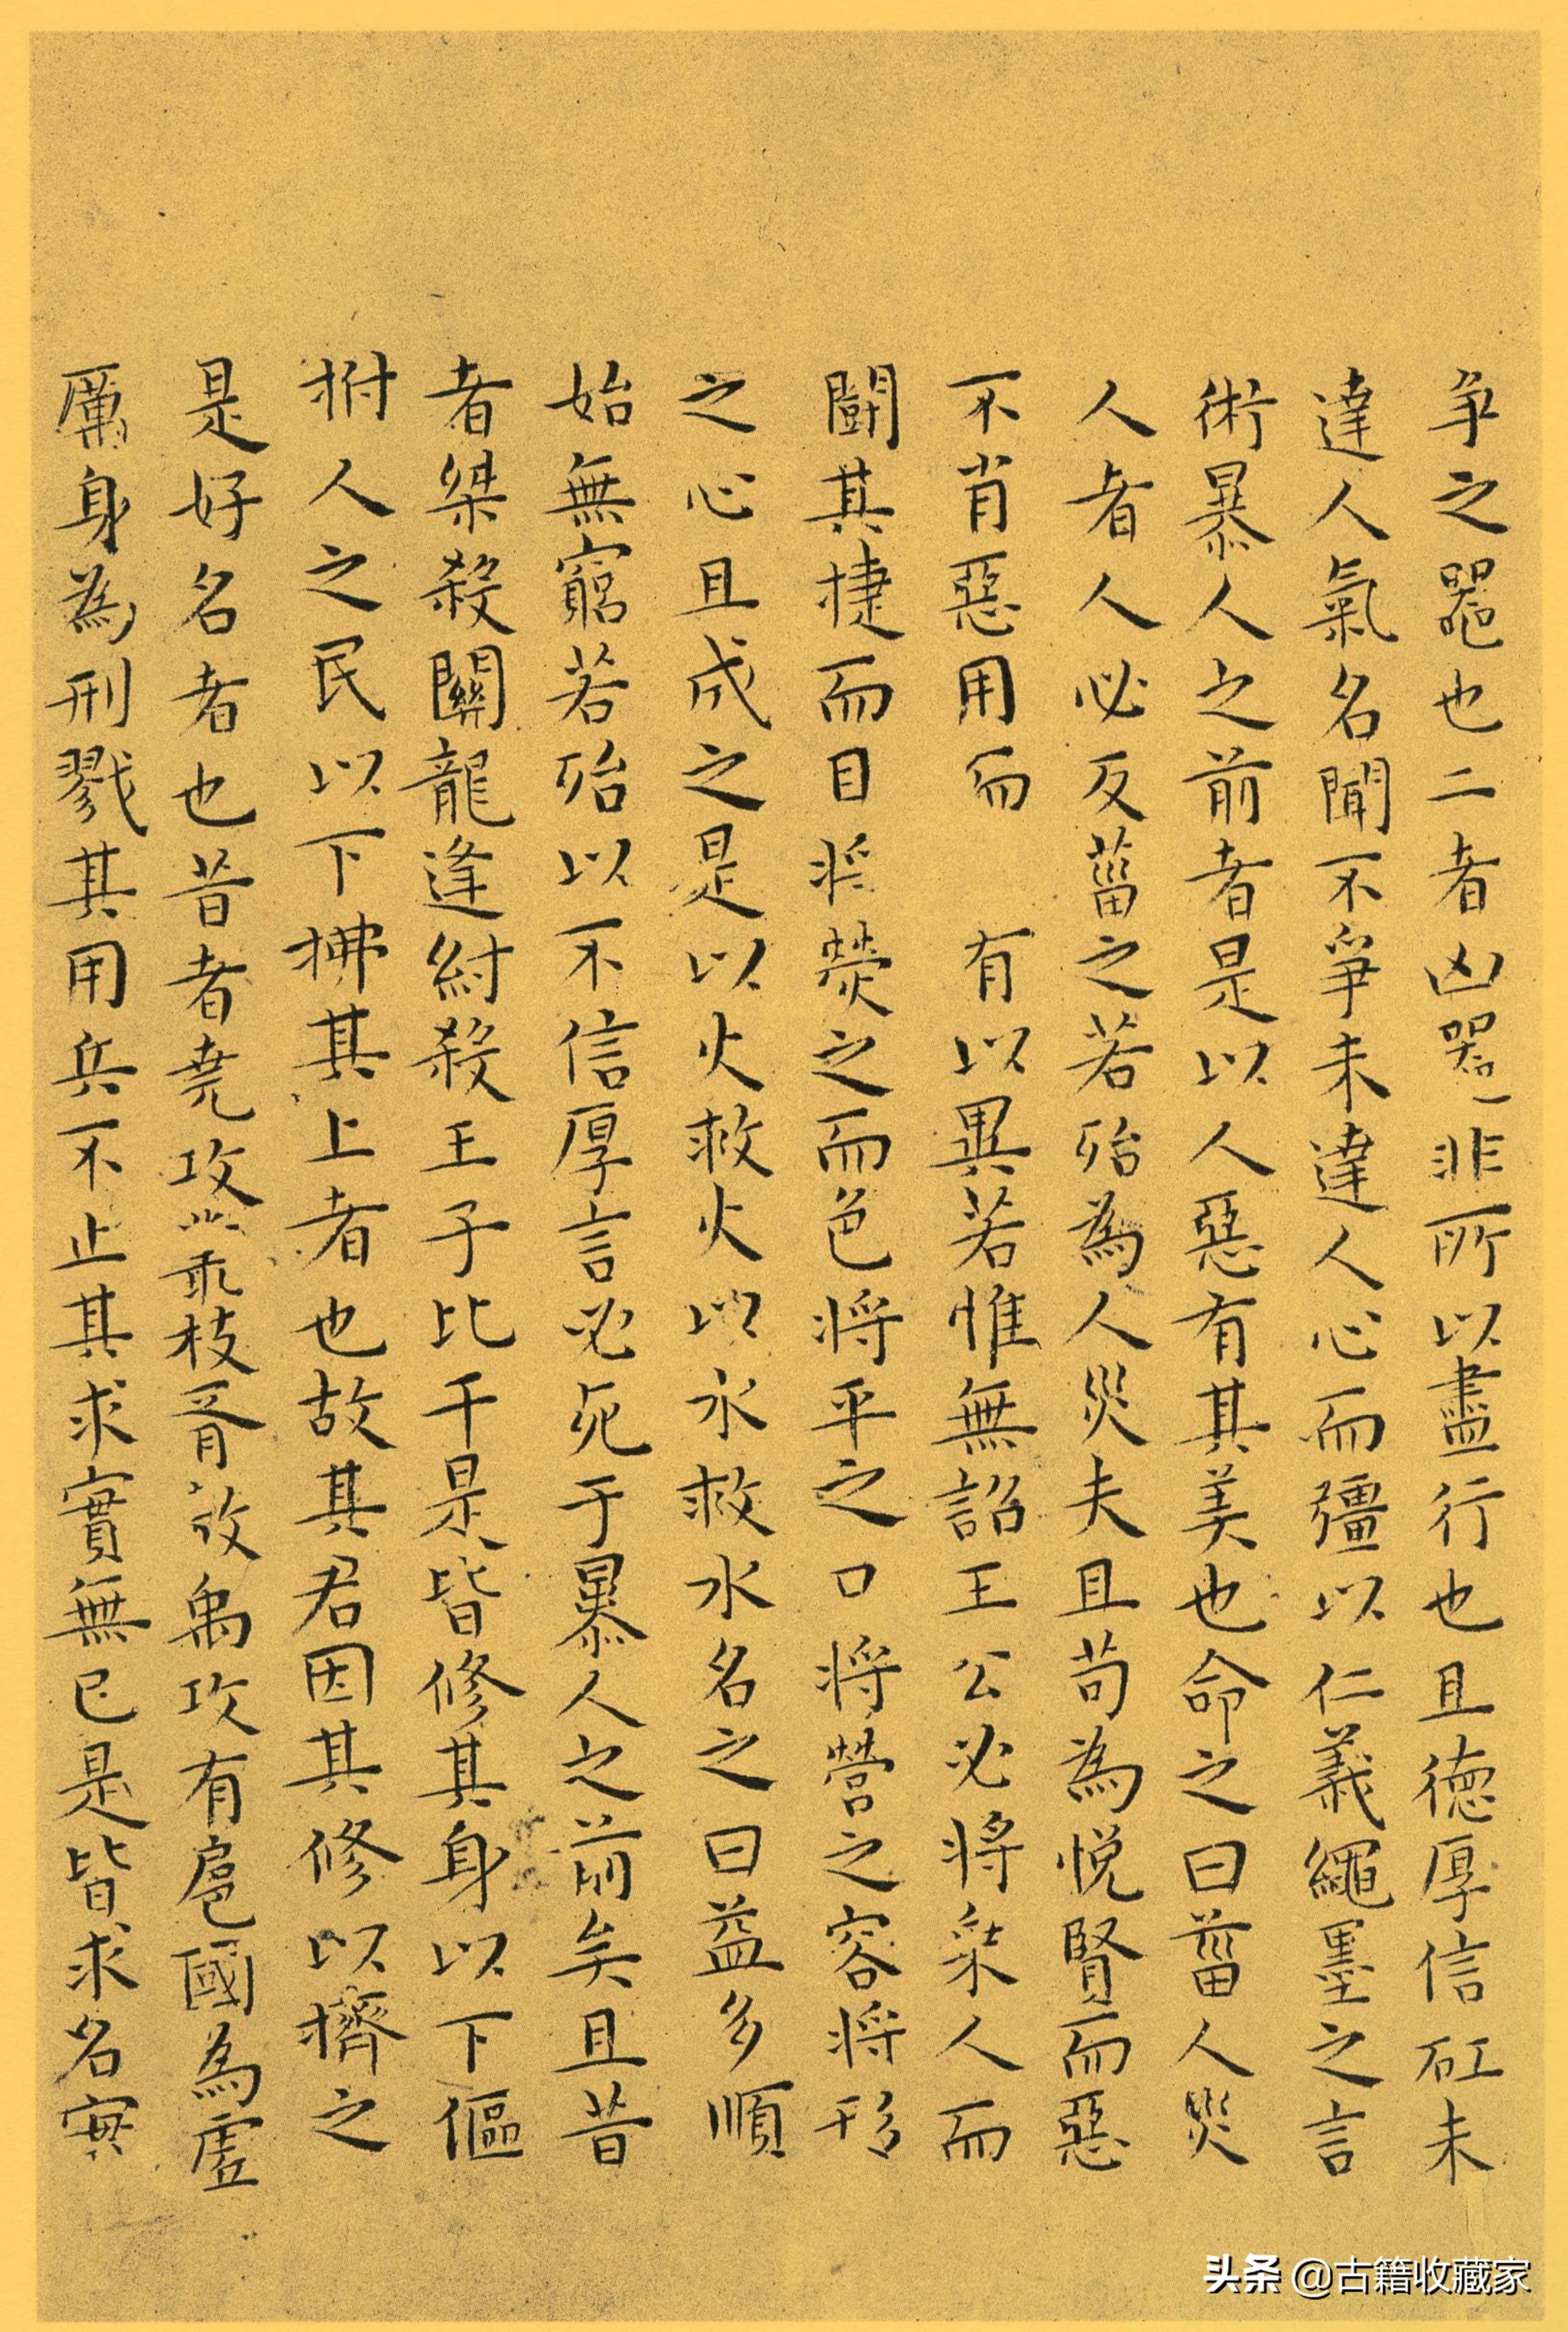 爭之器也二者凶器非所以盡行也且德厚信矼未
達人氣名聞不爭未達人心而彊以仁義繩墨之言
術暴人之前者是以人惡有其美也命之曰菑人災
人者人必反菑之若殆為人災夫且苟為悅賢而惡
不肖惡用而有以異若惟無詔王公必將乘人而
鬭其捷而目將熒之而色將平之口將營之容將形
之心且成之是以火救火以水救水名之曰益多順
始無窮若殆以不信厚言必死于暴人之前矣且昔
者桀殺關龍逢紂殺王子比干是皆修其身以下傴
拊人之民以下拂其上者也故其君因其修以擠之
是好名者也昔者堯攻叢枝胥敖禹攻有扈國為虛
厲身為刑戮其用兵不止其求實無已是皆求名實
头条 @古籍收藏家